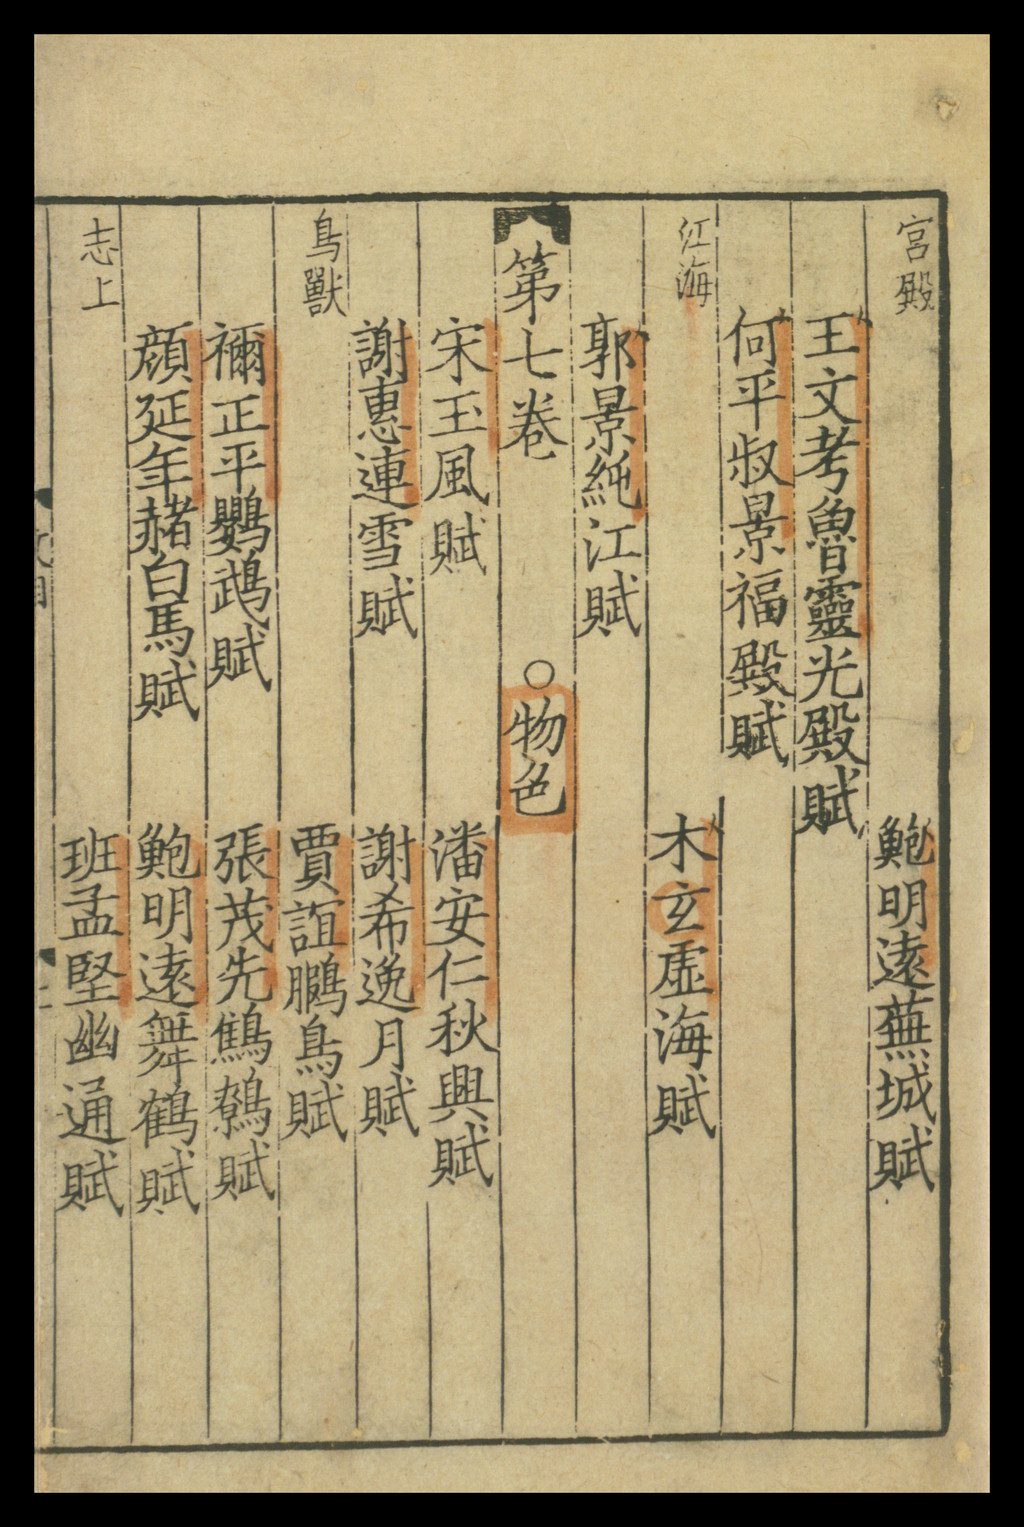 宮殿 鮑明遠蕪城賦
王文考魯靈光殿賦
何平叔景福殿賦
江海 木玄虛海賦
郭景純江賦
第七卷 ○物色
宋玉風賦 潘安仁秋興賦
謝惠連雪賦 謝希逸月賦
鳥獸 賈誼鵩鳥賦
禰正平鸚鵡賦 張茂先鷦鷯賦
顔延年赭白馬賦 鮑明遠舞鶴賦
志上 班孟堅幽通賦